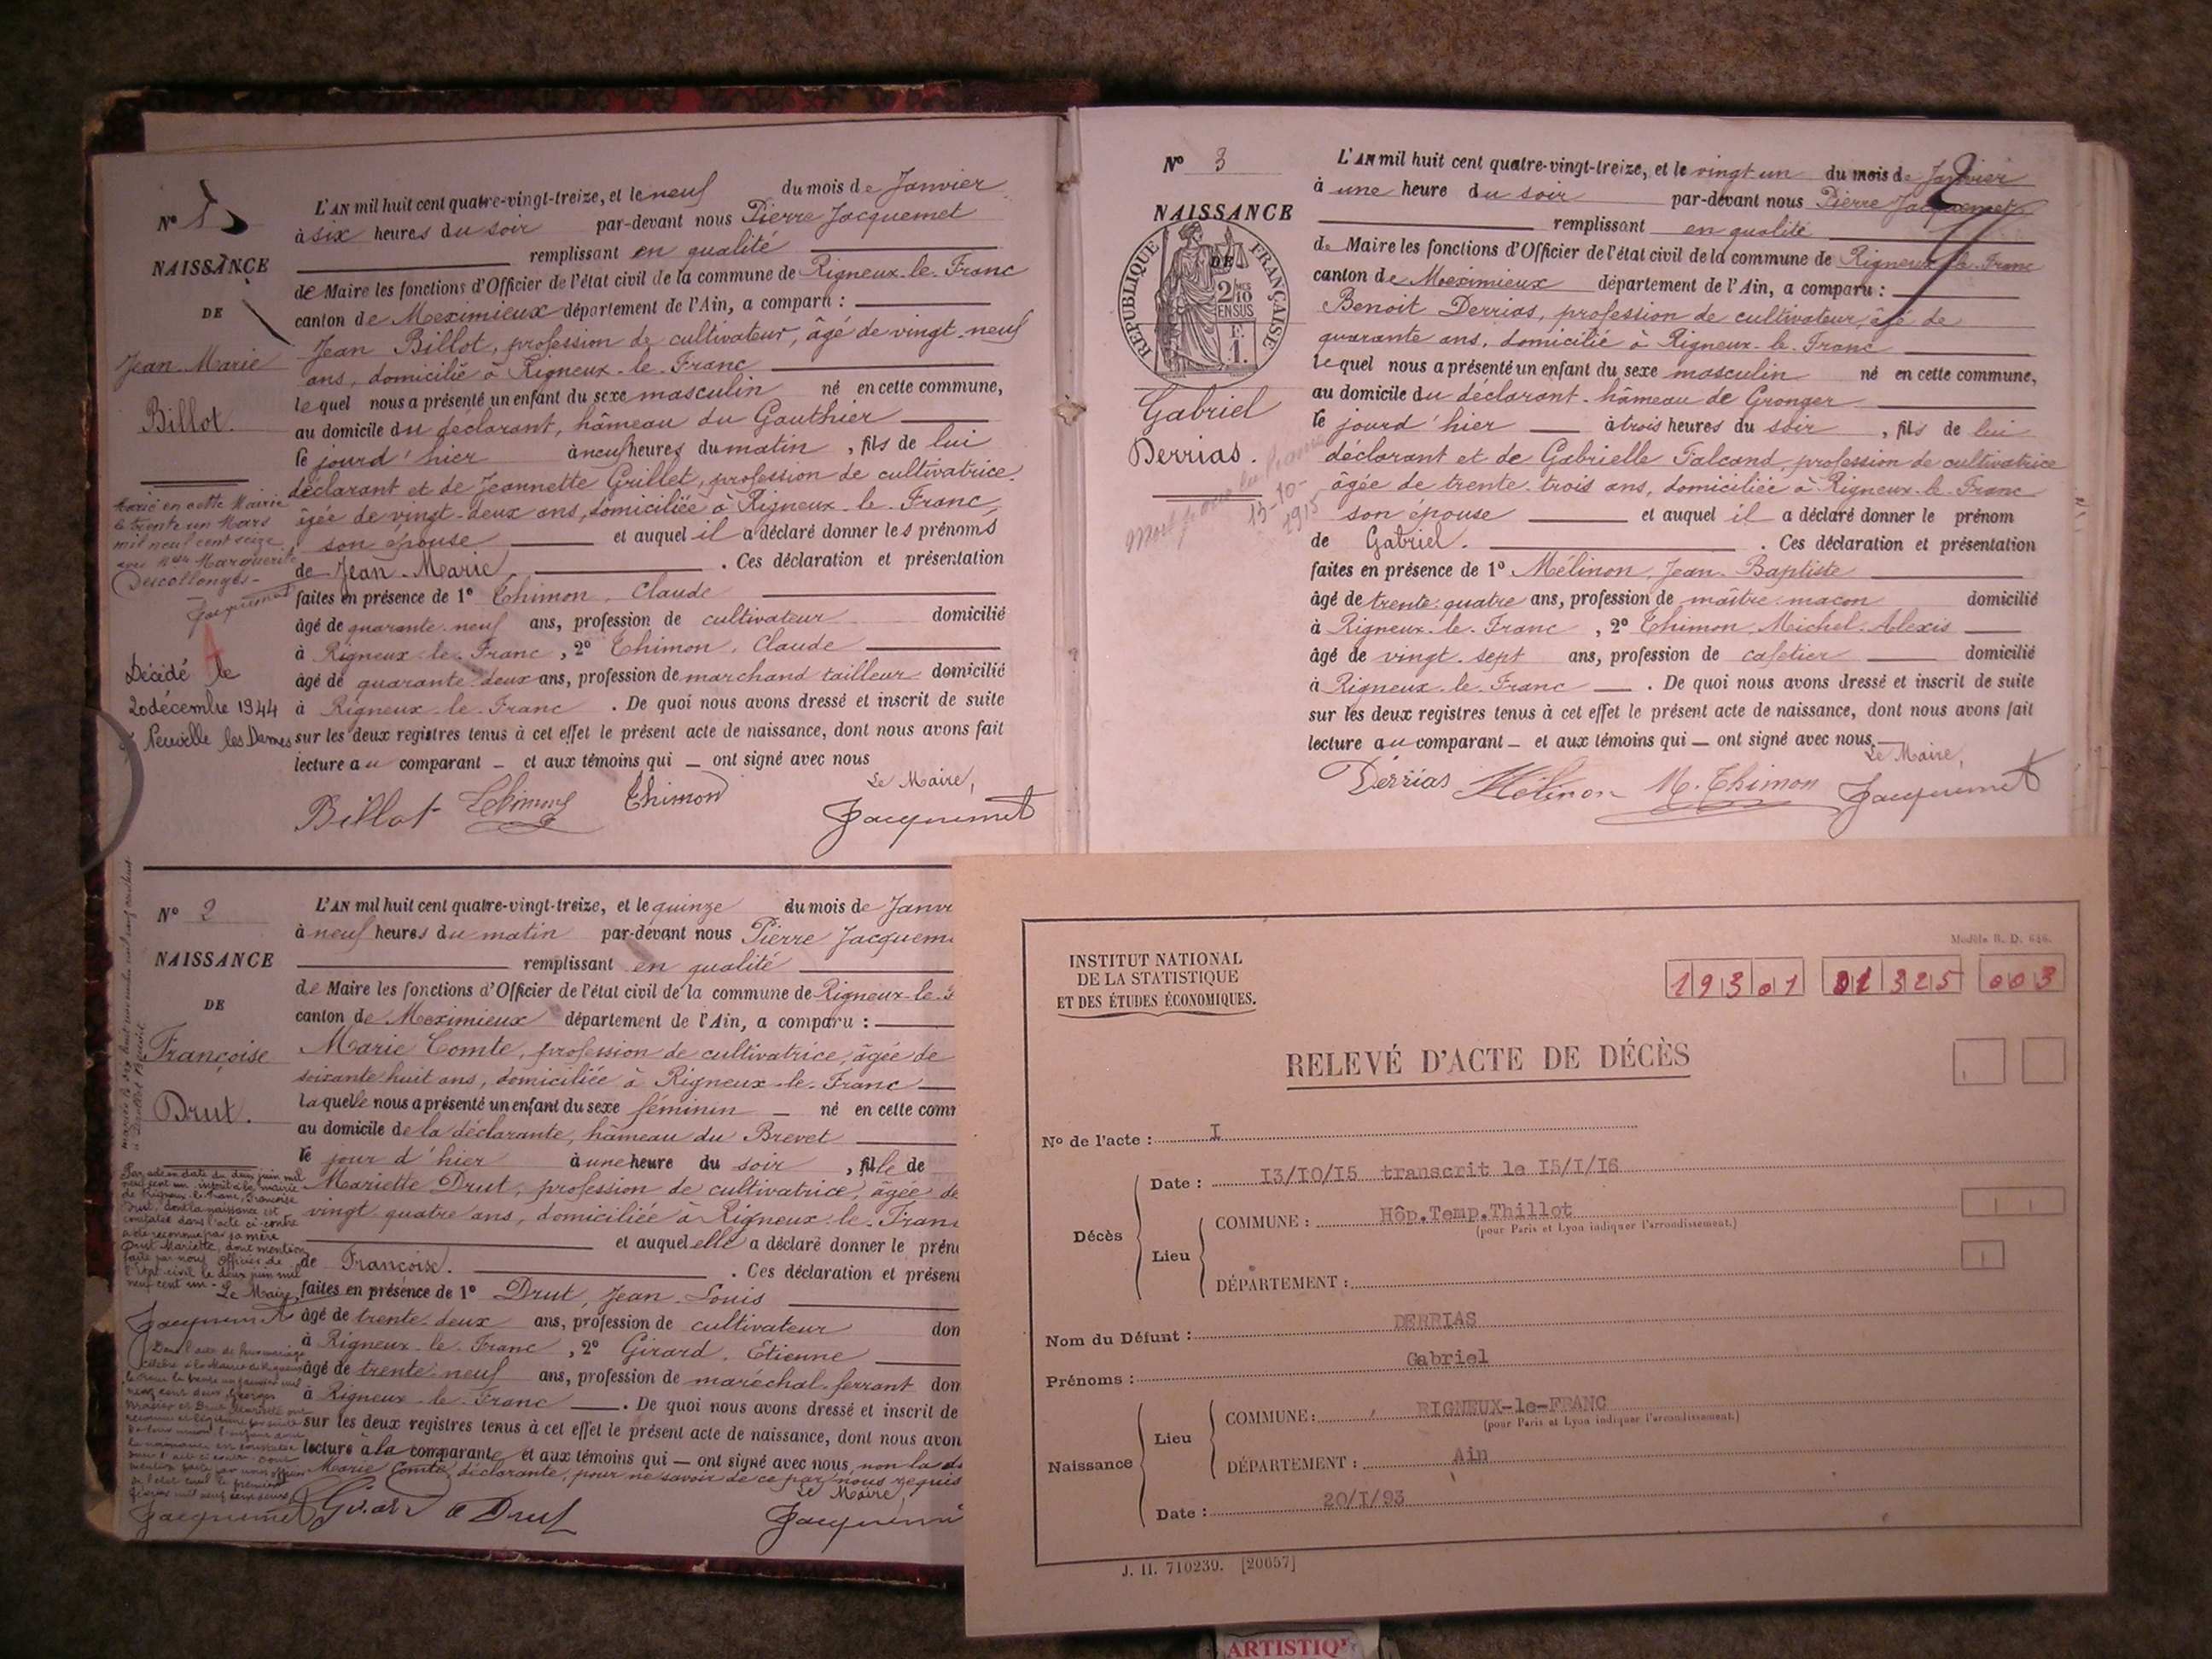 Nº 1
NAISSANCE
DE
Jean-Marie
Billot.
L'AN mil huit cent quatre-vingt-treize, et le neuf du mois de Janvier
à six heures du soir par-devant nous Pierre Jacquemet
remplissant en qualité
de Maire les fonctions d'Officier de l'état civil de la commune de Rigneux-le-Franc
canton de Meximieux département de l'Ain, a comparu :
Jean Billot, profession de cultivateur, âgé de vingt-neuf
ans, domicilié à Rigneux-le-Franc
lequel nous a présenté un enfant du sexe masculin né en cette commune,
au domicile du déclarant, hâmeau du Gauthier
le jourd'hier à neuf heures du matin, fils de lui
déclarant et de Jeannette Grillet, profession de cultivatrice,
âgée de vingt-deux ans, domiciliée à Rigneux-le-Franc,
son épouse et auquel il a déclaré donner les prénoms
de Jean-Marie. Ces déclaration et présentation
faites en présence de 1º Thimon, Claude
âgé de quarante-neuf ans, profession de cultivateur domicilié
à Rigneux-le-Franc, 2º Thimon, Claude
âgé de quarante-deux ans, profession de marchand tailleur domicilié
à Rigneux-le-Franc. De quoi nous avons dressé et inscrit de suite
sur les deux registres tenus à cet effet le présent acte de naissance, dont nous avons fait
lecture au comparant – et aux témoins qui – ont signé avec nous
Le Maire,
Billot Thimon Thimon Jacquemet
Marié en cette Mairie
le trente un Mars
mil neuf cent seize
avec Marguerite
Descollonges-
Jacquemet
Décédé le
20 décembre 1944
à Neuville les Dames
Nº 2
NAISSANCE
DE
Françoise
Drut.
L'AN mil huit cent quatre-vingt-treize, et le quinze du mois de Janvi
à neuf heures du matin par-devant nous Pierre Jacqueme
remplissant en qualité
de Maire les fonctions d'Officier de l'état civil de la commune de Rigneux-le-F
canton de Meximieux département de l'Ain, a comparu :
Marie Comte, profession de cultivatrice, âgée de
soixante huit ans, domiciliée à Rigneux-le-Franc
laquelle nous a présenté un enfant du sexe féminin – né en cette comm
au domicile de la déclarante, hâmeau du Brevet
le jour d'hier à une heure du soir, fille de
Mariette Drut, profession de cultivatrice, âgée de
vingt quatre ans, domiciliée à Rigneux-le-Fran
et auquel elle a déclaré donner le prén
de Françoise. Ces déclaration et présent
faites en présence de 1º Drut, Jean-Louis
âgé de trente-deux ans, profession de cultivateur dom
à Rigneux-le-Franc, 2º Girard, Etienne
âgé de trente-neuf ans, profession de maréchal-ferrant dom
à Rigneux-le-Franc. De quoi nous avons dressé et inscrit de
sur les deux registres tenus à cet effet le présent acte de naissance, dont nous avon
lecture à la comparante et aux témoins qui – ont signé avec nous, non la d
Marie Comte, déclarante, pour ne savoir de ce par nous requis
Le Maire,
Girard Drut Jacquem
Par acte en date du deux juin mil
neuf cent un, inscrit à la mairie
de Rigneux-le-Franc, Françoise
Drut, dont la naissance est
constatée dans l'acte ci-contre
a été reconnue par sa mère
Drut Mariette, dont mention
faite par nous Officier de
l'état civil le deux juin mil
neuf cent un - Le Maire,
Jacquemet
Jacquemet
Nº 3
NAISSANCE
DE
RÉPUBLIQUE FRANÇAISE
2/10 EN SUS
1 F.
Gabriel
Derrias.
Mort pour la France
13-10-
1915
L'AN mil huit cent quatre-vingt-treize, et le vingt un du mois de Janvier
à une heure du soir par-devant nous Pierre Jacquemet
remplissant en qualité
de Maire les fonctions d'Officier de l'état civil de la commune de Rigneux-le-Franc
canton de Meximieux département de l'Ain, a comparu :
Benoit Derrias, profession de cultivateur, âgé de
quarante ans, domicilié à Rigneux-le-Franc
lequel nous a présenté un enfant du sexe masculin né en cette commune,
au domicile du déclarant-hâmeau de Gronger
le jourd'hier à trois heures du soir, fils de lui
déclarant et de Gabrielle Falcand, profession de cultivatrice
âgée de trente-trois ans, domiciliée à Rigneux-le-Franc
son épouse et auquel il a déclaré donner le prénom
de Gabriel. Ces déclaration et présentation
faites en présence de 1º Mélinon, Jean-Baptiste
âgé de trente-quatre ans, profession de maître-maçon domicilié
à Rigneux-le-Franc, 2º Thimon, Michel-Alexis
âgé de vingt-sept ans, profession de cafetier domicilié
à Rigneux-le-Franc. De quoi nous avons dressé et inscrit de suite
sur les deux registres tenus à cet effet le présent acte de naissance, dont nous avons fait
lecture au comparant – et aux témoins qui – ont signé avec nous
Le Maire,
Derrias Mélinon M. Thimon Jacquemet
INSTITUT NATIONAL
DE LA STATISTIQUE
ET DES ÉTUDES ÉCONOMIQUES.
Modèle R. D. 616.
19301 01325 003
RELEVÉ D'ACTE DE DÉCÈS
Nº de l'acte : I
Décès
Date : I3/IO/I5 transcrit le I5/I/I6
Lieu
COMMUNE : Hôp.Temp.Thillot
(pour Paris et Lyon indiquer l'arrondissement.)
DÉPARTEMENT :
Nom du Défunt : DERRIAS
Prénoms : Gabriel
Naissance
Lieu
COMMUNE : RIGNEUX-le-FRANC
(pour Paris et Lyon indiquer l'arrondissement.)
DÉPARTEMENT : Ain
Date : 20/I/93
J. II. 710239. [20057]
ARTISTIQ